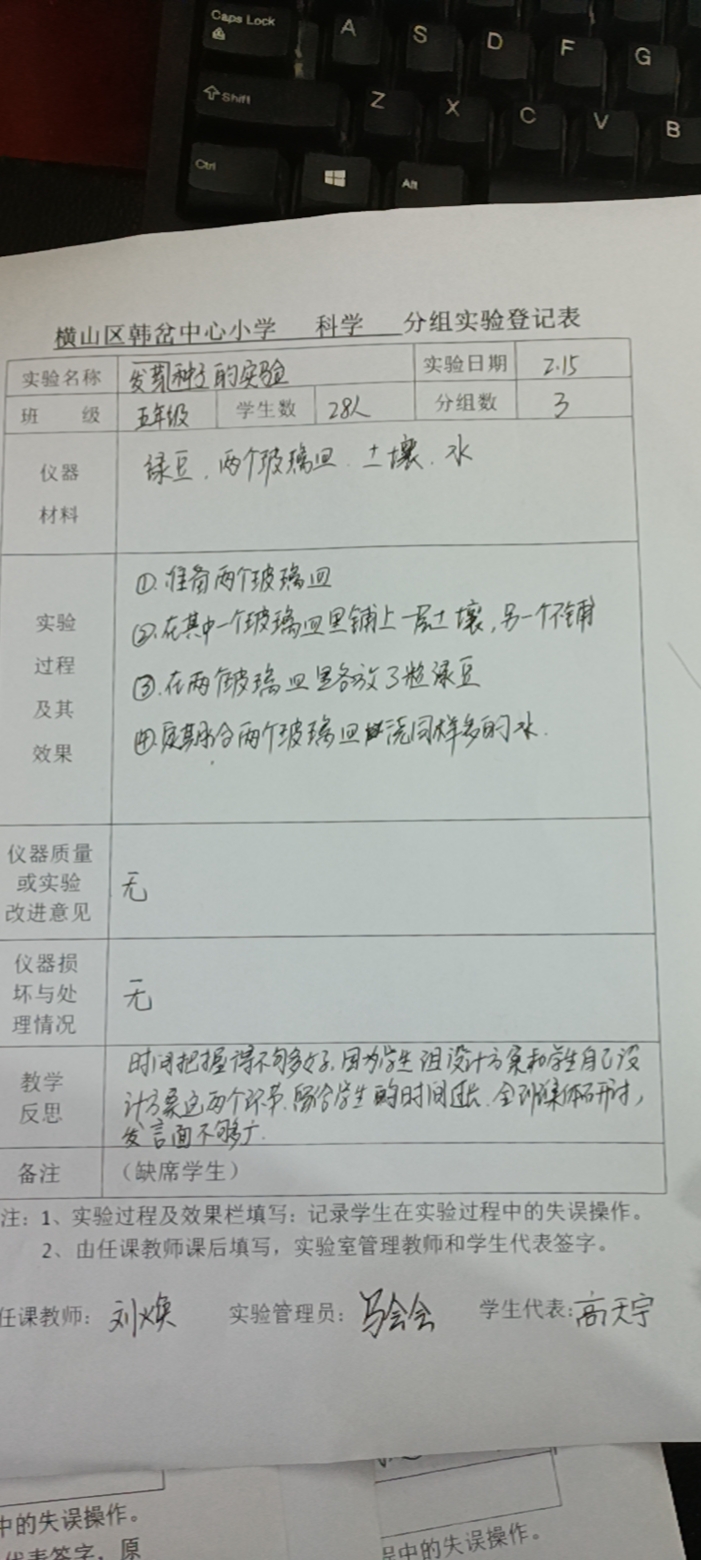 Caps Lock A S D F G
Shift Z X C V B
Ctrl Alt
横山区韩岔中心小学 科学 分组实验登记表
实验名称 发芽种子的实验 实验日期 2.15
班 级 五年级 学生数 28人 分组数 3
仪器
材料
绿豆、两个玻璃皿、土壤、水
实验
过程
及其
效果
①.准备两个玻璃皿
②.在其中一个玻璃皿里铺上一层土壤,另一个不铺
③.在两个玻璃皿里各放3粒绿豆
④.定期给两个玻璃皿浇同样多的水.
仪器质量
或实验
改进意见
无
仪器损
坏与处
理情况
无
教学
反思
时间把握得不够多好,因为学生组设计方案和学生自己设
计方案这两个环节、留给学生的时间过长.全班集体研讨,
发言面不够广.
备注 (缺席学生)
注:1、实验过程及效果栏填写:记录学生在实验过程中的失误操作。
2、由任课教师课后填写,实验室管理教师和学生代表签字。
任课教师: 刘焕 实验管理员: 马会会 学生代表:高天宇
中的失误操作。
代表签字,原
程中的失误操作。